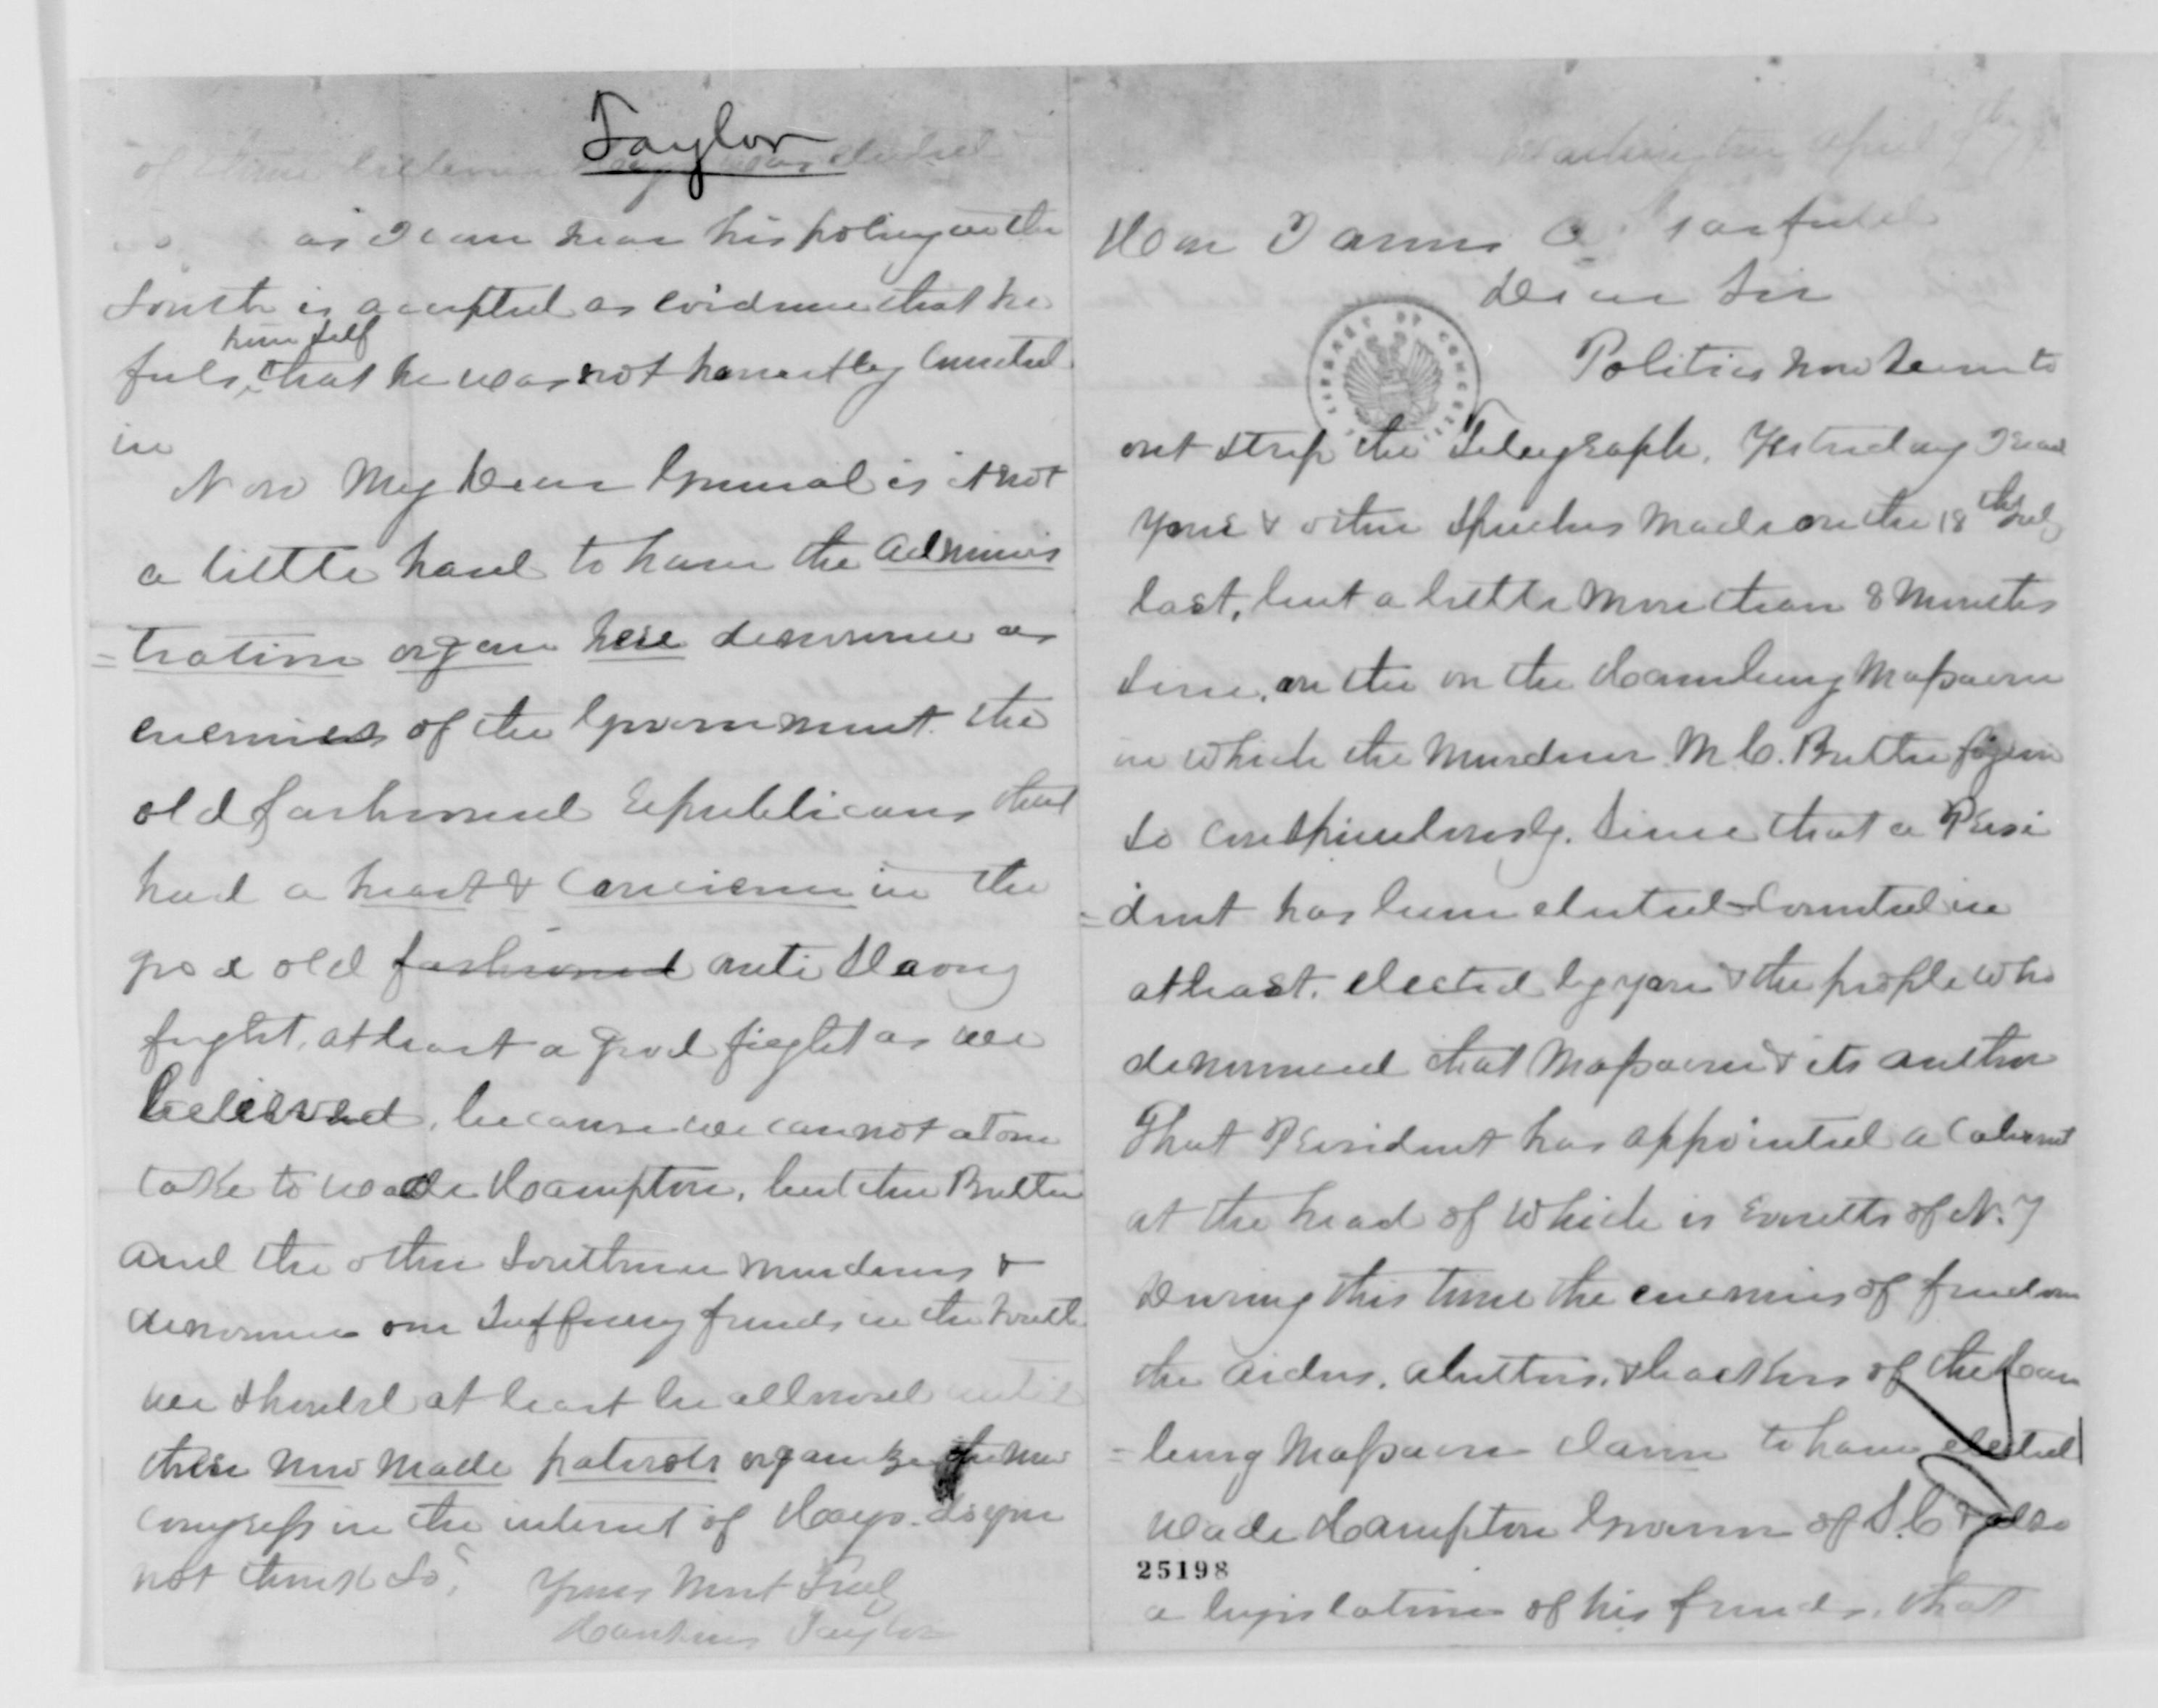 Taylor
of these
as I can hear his policy in the
South is accepted as evidence that he
himself
feels, that he was not honestly Counted
in
Now My Dear General is it not
a little hard to have the Adminis
=tration organ here denounce as
enemies of the Government. the
old fashioned republicans that
had a heart & Concience in the
good old fashioned anti Slavery
fight, at least a good fight as we
believed, because we cannot at once
take to Wade Hampton, butcher Butler
and the other Southern murderers &
denounce our Suffering friends in the South
we should at least be allowed until
these new made patriots organize the new
Congress in the interest of Hays. do you
not think So? Yours Most Truly
Hawkins Taylor
Washington April
Hon James A. Garfield
Dear Sir
Politics now Seem to
out Strip the Telegraph. Yesterday I read
your & other Speeches made on the 18th July
last, but a little more than 8 months
Since, on the on the Hamburg Massacre
in which the Murderer M. C. Butler figured
So Conspiculously. Since that a Presi
=dent has been elected – Counted in
at least. elected by you & the people who
denounced that Massacre & its author
That President has appointed a Cabinet
at the head of which is Evretts of N. Y
During this time the enemies of freedom
the aiders, abettors, & backers of the Ham
=burg Massacre claim to have elected
Wade Hampton Governor of S. C & also
25198
a legislature of his friends, that
LIBRARY OF CONGRESS